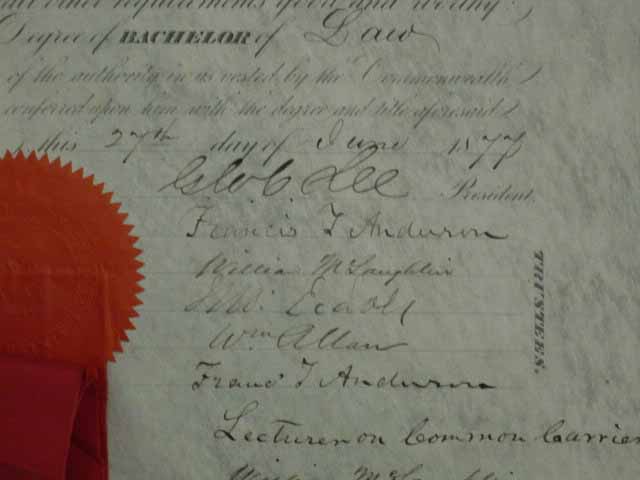 all other requirements good and worthy
Degree of BACHELOR of Law
of the authority in us vested by the Commonwealth
conferred upon him with the degree and title aforesaid
this 27th day of June 1877
President.
Francis T Anderson
William McLaughlin
Wm Allan
Franc T Anderson
TRUSTEES.
Lecturer on Common Carrier
William McLaughlin